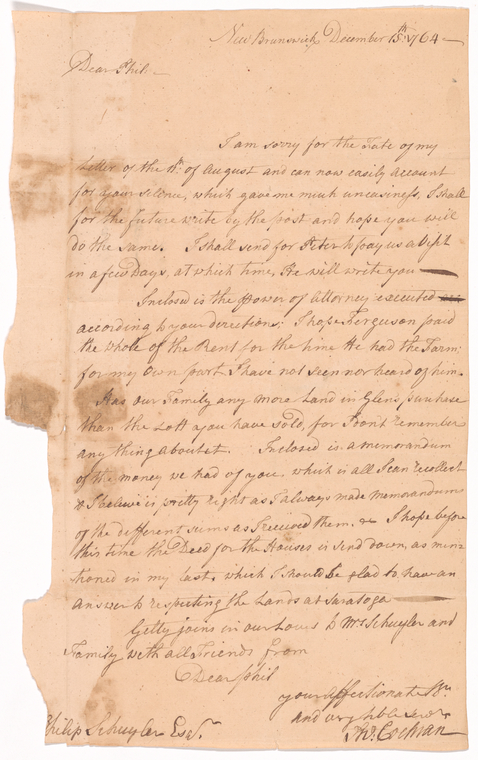 New Brunswick December 15th. 1764 —
Dear Phil —
I am sorry for the Fate of my
Letter of the 11th. of August and can now easily account
for your silence, which gave me much uneasiness, I shall
for the future write by the post and hope you will
do the same. I shall send for Peter to pay us a Visit
in a few Days, at which time, He will write you —
Inclosed is the Power of Attorney executed
according to your directions; I hope Ferguson paid
the whole of the Rent for the time He had the Farm;
for my own part I have not seen nor heard of him.
Has our Family any more Land in Glens purchase
than the Lott you have sold, for I don't remember
any thing about it. Inclosed is a memorandum
of the money we had of you, which is all I can recollect
& I believe is pretty right as I always made memorandums
of the different sums as I received them. & I hope before
this time the Deed for the Houses is send down, as men=
tioned in my last, which I should be glad to have an
answer to respecting the Lands at Saratoga —
Getty joins in our Loves to Mrs Schuyler and
Family with all Friends from
Dear Phil
your Affectionate Br.
and very hble Servt.
Jno. Cochran
Philip Schuyler Esqr.